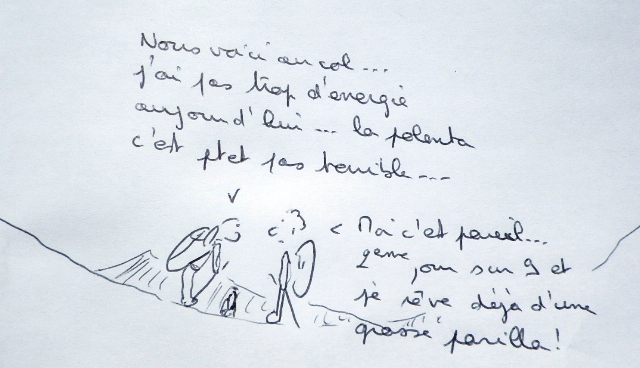 Nous voici au col...
j'ai pas trop d'énergie
aujourd'hui... la polenta
c'est ptet pas terrible...
Moi c'est pareil...
2ème jour sur 9 et
je rêve déjà d'une
"grosse" parilla!